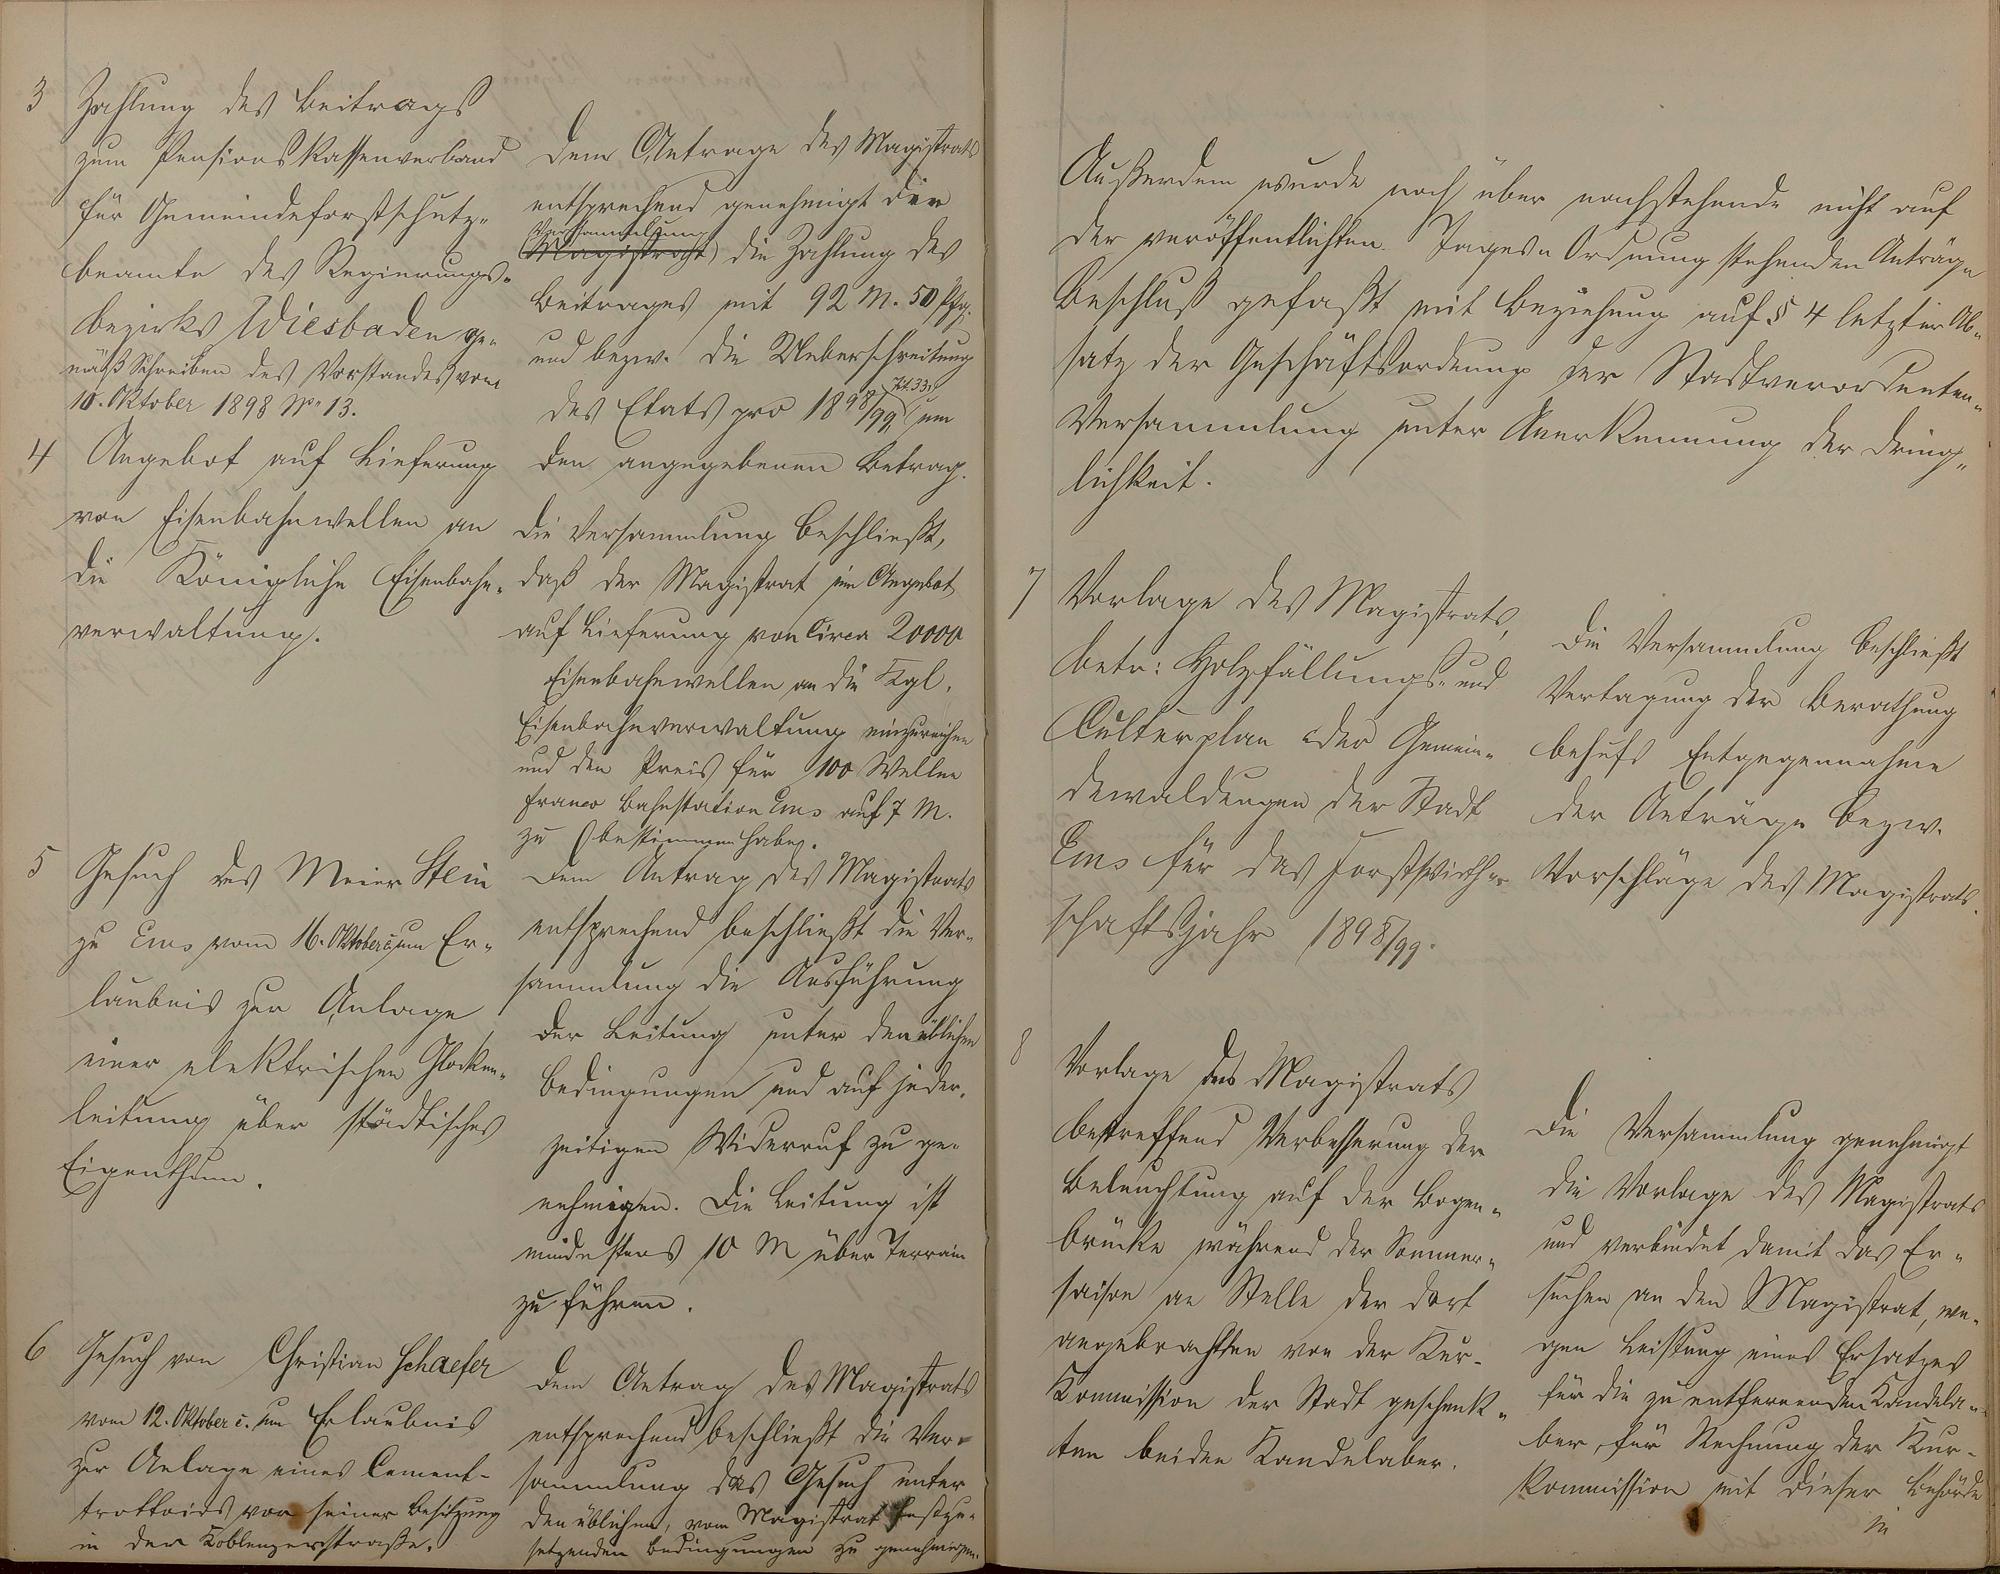 3 Zahlung des Beitrags
zum Pensionskassenverband
für Gemeindeforstschutz-
beamte des Regierungs-
bezirks Wiesbaden ge-
mäß Schreiben des Vorstandes vom
10. Oktober 1898 No 13.
Dem Antrage des Magistrats
entsprechend genehmigt die
Versammlung
(Magistrat) die Zahlung des
Beitrages mit 92 M. 50 Pfg.
und bezw. die Ueberschreitung
Tit. 33,
des Etats pro 1898/99 um
den angegebenen Betrag.
4 Angebot auf Lieferung
von Eisenbahnwellen an
die Königliche Eisenbahn-
verwaltung.
Die Versammlung beschließt,
daß der Magistrat ein Angebot
auf Lieferung von circa 20000
Eisenbahnwellen an die Kgl.
Eisenbahnverwaltung einzureichen
und den Preis für 100 Wellen
franco Bahnstation Ems auf 7 M.
zu bestimmen habe.
5 Gesuch des Meier Stein
zu Ems vom 16. Oktober c. um Er-
laubnis zur Anlage
einer elektrischen Glocken-
leitung über städtisches
Eigenthum.
Dem Antrag des Magistrats
entsprechend beschließt die Ver-
sammlung die Ausführung
der Leitung unter den üblichen
Bedingungen und auf jeder-
zeitigen Widerruf zu ge-
nehmigen. Die Leitung ist
mindestens 10 M über Terrain
zu führen.
6 Gesuch von Christian Schaefer
vom 12. Oktober c. um Erlaubnis
zur Anlage eines Cement-
trottoirs vor seiner Besitzung
in der Koblenzerstraße.
Dem Antrag des Magistrats
entsprechend beschließt die Ver-
sammlung das Gesuch unter
den üblichen, vom Magistrat festzu-
setzenden Bedingungen zu genehmigen.
Außerdem wurde noch über nachstehende nicht auf
der veröffentlichten Tages-Ordnung stehenden Anträge
Beschluß gefaßt mit Beziehung auf § 4 letzter Ab-
satz der Geschäftsordnung der Stadtverordneten-
Versammlung unter Anerkennung der Dring-
lichkeit.
7 Vorlage des Magistrats,
betr: Holzfällungs- und
Culturplan der Gemein-
dewaldungen der Stadt
Ems für das Forstwirth-
schaftsjahr 1898/99.
Die Versammlung beschließt
Vertagung der Berathung
behufs Entgegennahme
der Anträge bezw.
Vorschläge des Magistrats.
8 Vorlage des Magistrats
betreffend Verbesserung der
Beleuchtung auf der Bogen-
brücke während der Sommer-
saison an Stelle der dort
angebrachten von der Kur-
Kommission der Stadt geschenk-
ten beiden Kandelaber.
Die Versammlung genehmigt
die Vorlage des Magistrats
und verbindet damit das Er-
suchen an den Magistrat, we-
gen Leistung eines Ersatzes
für die zu entfernenden Kandela-
ber, für Rechnung der Kur-
Kommission mit dieser Behörde
in